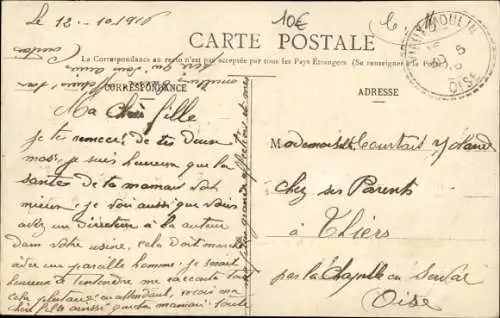 Le 12-10-1916
10€
CARTE POSTALE
La Correspondance au recto n'est pas acceptée par tous les Pays Étrangers. (Se renseigner à la Poste)
CORRESPONDANCE
ADRESSE
VIEUX-MOULIN
OISE
Ma Chère fille
je te remercie de tes deux
mots, je suis heureux que la
santée de ta maman soit
mieux. je vois aussi que vous
avez un directeur à la auteur
dans votre usine, cela doit marcher
avec un pareille homme. je serait
heureux de t'entendre me raconter tout
cela
en attendant, reçois ma
chère fille aussi que ta maman toute
mes grande affection et mes
Mademoiselle Courtait Yolande
Chez ses Parents
à Thiers
par la Chapelle en Serval
Oise